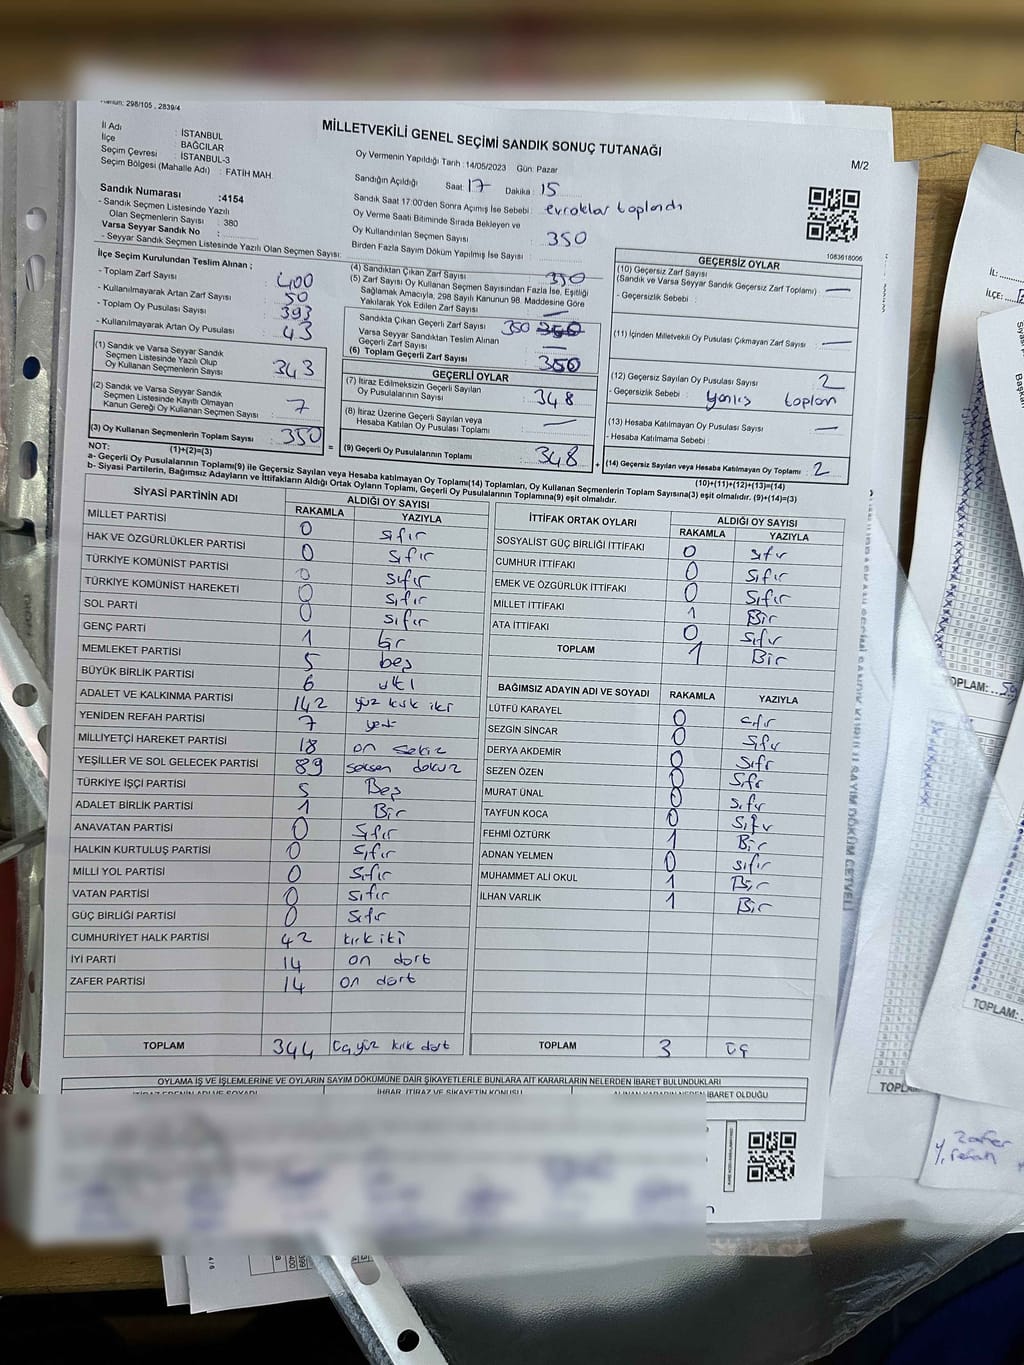 Kanun: 298/105 , 2839/4
MİLLETVEKİLİ GENEL SEÇİMİ SANDIK SONUÇ TUTANAĞI
M/2
İl Adı : İSTANBUL
İlçe : BAĞCILAR
Seçim Çevresi : İSTANBUL-3
Seçim Bölgesi (Mahalle Adı) : FATİH MAH.
Oy Vermenin Yapıldığı Tarih : 14/05/2023 Gün: Pazar
Sandığın Açıldığı Saat: 17 Dakika : 15
Sandık Saat 17:00'den Sonra Açımış İse Sebebi : evraklar toplandı
Oy Verme Saati Bitiminde Sırada Bekleyen ve
Oy Kullandırılan Seçmen Sayısı : 350
Birden Fazla Sayım Döküm Yapılmış İse Sayısı :
1083618006
Sandık Numarası :4154
- Sandık Seçmen Listesinde Yazılı
Olan Seçmenlerin Sayısı : 380
Varsa Seyyar Sandık No :
- Seyyar Sandık Seçmen Listesinde Yazılı Olan Seçmen Sayısı:
İlçe Seçim Kurulundan Teslim Alınan ;
- Toplam Zarf Sayısı : 400
- Kullanılmayarak Artan Zarf Sayısı : 50
- Toplam Oy Pusulası Sayısı : 393
- Kullanılmayarak Artan Oy Pusulası : 43
(1) Sandık ve Varsa Seyyar Sandık
Seçmen Listesinde Yazılı Olup
Oy Kullanan Seçmenlerin Sayısı : 343
(2) Sandık ve Varsa Seyyar Sandık
Seçmen Listesinde Kayıtlı Olmayan
Kanun Gereği Oy Kullanan Seçmen Sayısı : 7
(3) Oy Kullanan Seçmenlerin Toplam Sayısı : 350
(1)+(2)=(3)
(4) Sandıktan Çıkan Zarf Sayısı : 350
(5) Zarf Sayısı Oy Kullanan Seçmen Sayısından Fazla İse, Eşitliği
Sağlamak Amacıyla, 298 Sayılı Kanunun 98. Maddesine Göre
Yakılarak Yok Edilen Zarf Sayısı : —
Sandıkta Çıkan Geçerli Zarf Sayısı : 350 350
Varsa Seyyar Sandıktan Teslim Alınan
Geçerli Zarf Sayısı : —
(6) Toplam Geçerli Zarf Sayısı : 350
GEÇERLİ OYLAR
(7) İtiraz Edilmeksizin Geçerli Sayılan
Oy Pusulalarının Sayısı : 348
(8) İtiraz Üzerine Geçerli Sayılan veya
Hesaba Katılan Oy Pusulası Toplamı : —
= (9) Geçerli Oy Pusulalarının Toplamı : 348
GEÇERSİZ OYLAR
(10) Geçersiz Zarf Sayısı
(Sandık ve Varsa Seyyar Sandık Geçersiz Zarf Toplamı) : —
- Geçersizlik Sebebi :
(11) İçinden Milletvekili Oy Pusulası Çıkmayan Zarf Sayısı : —
(12) Geçersiz Sayılan Oy Pusulası Sayısı : 2
- Geçersizlik Sebebi : yanlış toplam
(13) Hesaba Katılmayan Oy Pusulası Sayısı : —
- Hesaba Katılmama Sebebi :
+ (14) Geçersiz Sayılan veya Hesaba Katılmayan Oy Toplamı : 2
(10)+(11)+(12)+(13)=(14)
NOT:
a- Geçerli Oy Pusulalarının Toplamı(9) ile Geçersiz Sayılan veya Hesaba Katılmayan Oy Toplamı(14) Toplamları, Oy Kullanan Seçmenlerin Toplam Sayısına(3) eşit olmalıdır. (9)+(14)=(3)
b- Siyasi Partilerin, Bağımsız Adayların ve İttifakların Aldığı Ortak Oyların Toplamı, Geçerli Oy Pusulalarının Toplamına(9) eşit olmalıdır.
SİYASİ PARTİNİN ADI ALDIĞI OY SAYISI
RAKAMLA YAZIYLA
MİLLET PARTİSİ 0 sıfır
HAK VE ÖZGÜRLÜKLER PARTİSİ 0 sıfır
TÜRKİYE KOMÜNİST PARTİSİ 0 sıfır
TÜRKİYE KOMÜNİST HAREKETİ 0 sıfır
SOL PARTİ 0 sıfır
GENÇ PARTİ 1 bir
MEMLEKET PARTİSİ 5 beş
BÜYÜK BİRLİK PARTİSİ 6
ADALET VE KALKINMA PARTİSİ 142 yüz kırk iki
YENİDEN REFAH PARTİSİ 7 yedi
MİLLİYETÇİ HAREKET PARTİSİ 18 on sekiz
YEŞİLLER VE SOL GELECEK PARTİSİ 89 seksen dokuz
TÜRKİYE İŞÇİ PARTİSİ 5 Beş
ADALET BİRLİK PARTİSİ 1 Bir
ANAVATAN PARTİSİ 0 Sıfır
HALKIN KURTULUŞ PARTİSİ 0 Sıfır
MİLLİ YOL PARTİSİ 0 Sıfır
VATAN PARTİSİ 0 Sıfır
GÜÇ BİRLİĞİ PARTİSİ 0 Sıfır
CUMHURİYET HALK PARTİSİ 42 kırk iki
İYİ PARTİ 14 on dört
ZAFER PARTİSİ 14 on dört
TOPLAM 344 üç yüz kırk dört
İTTİFAK ORTAK OYLARI ALDIĞI OY SAYISI
RAKAMLA YAZIYLA
SOSYALIST GÜÇ BİRLİĞİ İTTİFAKI 0 sıfır
CUMHUR İTTİFAKI 0 Sıfır
EMEK VE ÖZGÜRLÜK İTTİFAKI 0 Sıfır
MİLLET İTTİFAKI 1 Bir
ATA İTTİFAKI 0 Sıfır
TOPLAM 1 Bir
BAĞIMSIZ ADAYIN ADI VE SOYADI RAKAMLA YAZIYLA
LÜTFÜ KARAYEL 0 sıfır
SEZGİN SİNCAR 0 Sıfır
DERYA AKDEMİR 0 Sıfır
SEZEN ÖZEN 0 Sıfır
MURAT ÜNAL 0 sıfır
TAYFUN KOCA 0 Sıfır
FEHMİ ÖZTÜRK 1 Bir
ADNAN YELMEN 0 sıfır
MUHAMMET ALİ OKUL 1 Bir
İLHAN VARLIK 1 Bir
TOPLAM 3 üç
OYLAMA İŞ VE İŞLEMLERİNE VE OYLARIN SAYIM DÖKÜMÜNE DAİR ŞİKAYETLERLE BUNLARA AİT KARARLARIN NELERDEN İBARET BULUNDUKLARI
İHBAR, İTİRAZ VE ŞİKAYETİN KONUSU
İBARET OLDUĞU
İL:
İLÇE:
TOPLAM:
TOPLAM:
zafer
y. refah